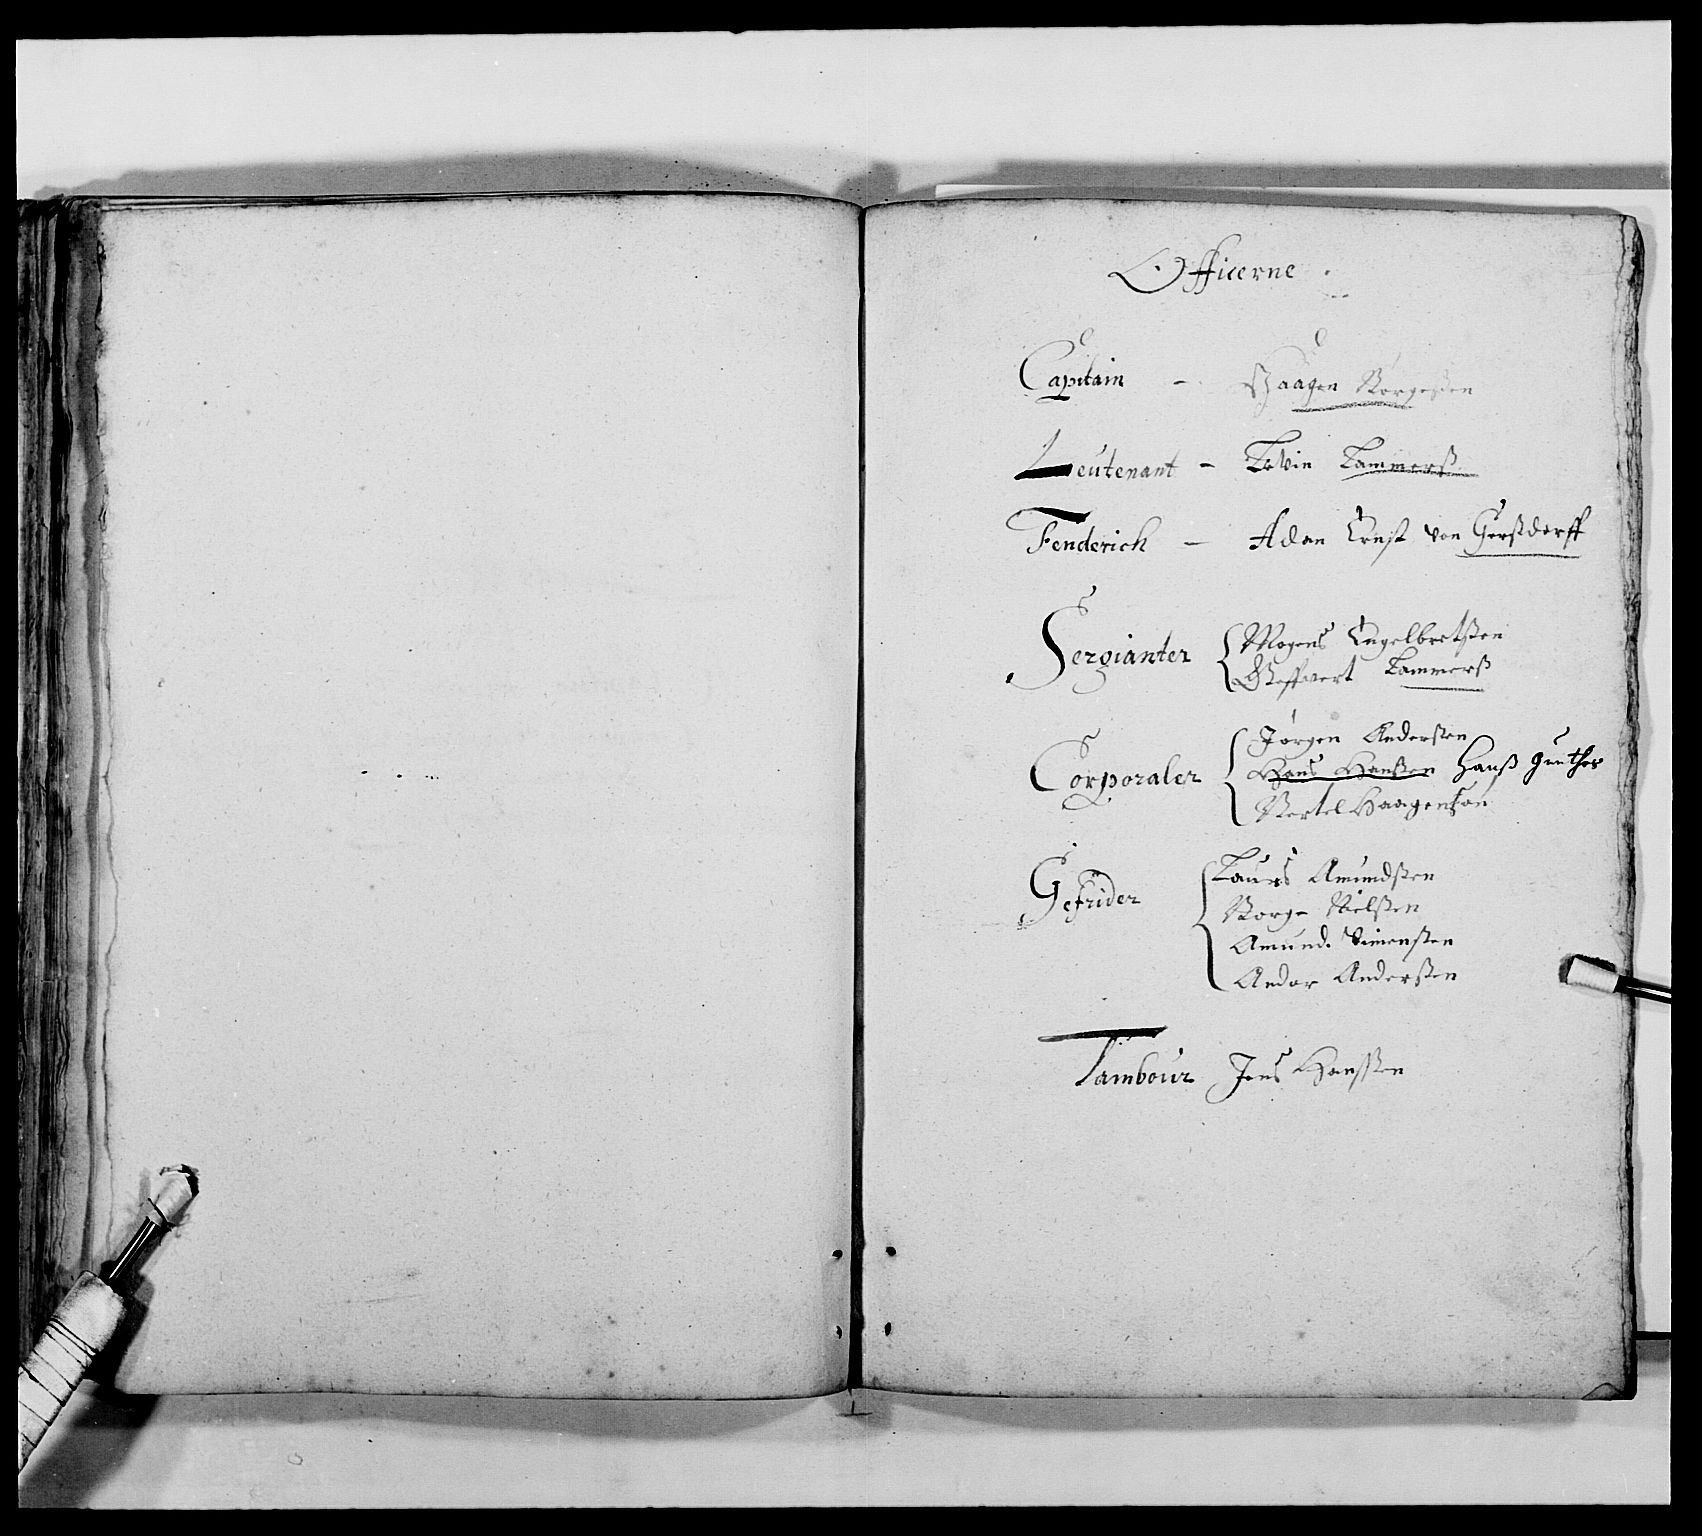 Officerne
Capitain - Haagen Børgesen
Leutenant - Levin Lammerß
Fenderich - Adam Ernst von Gerßdorff
Sergianter Mogens Engelbretßen
Lammerß
Corporaler Jørgen Anderßen
Hans Hanßen Hanß Gunther
Bertel Haagensøn
Gefrider Laurs Amundßen
Børge Nielßen
Amund Simenßen
Andor Anderßen
Tambour Jens Hanßen